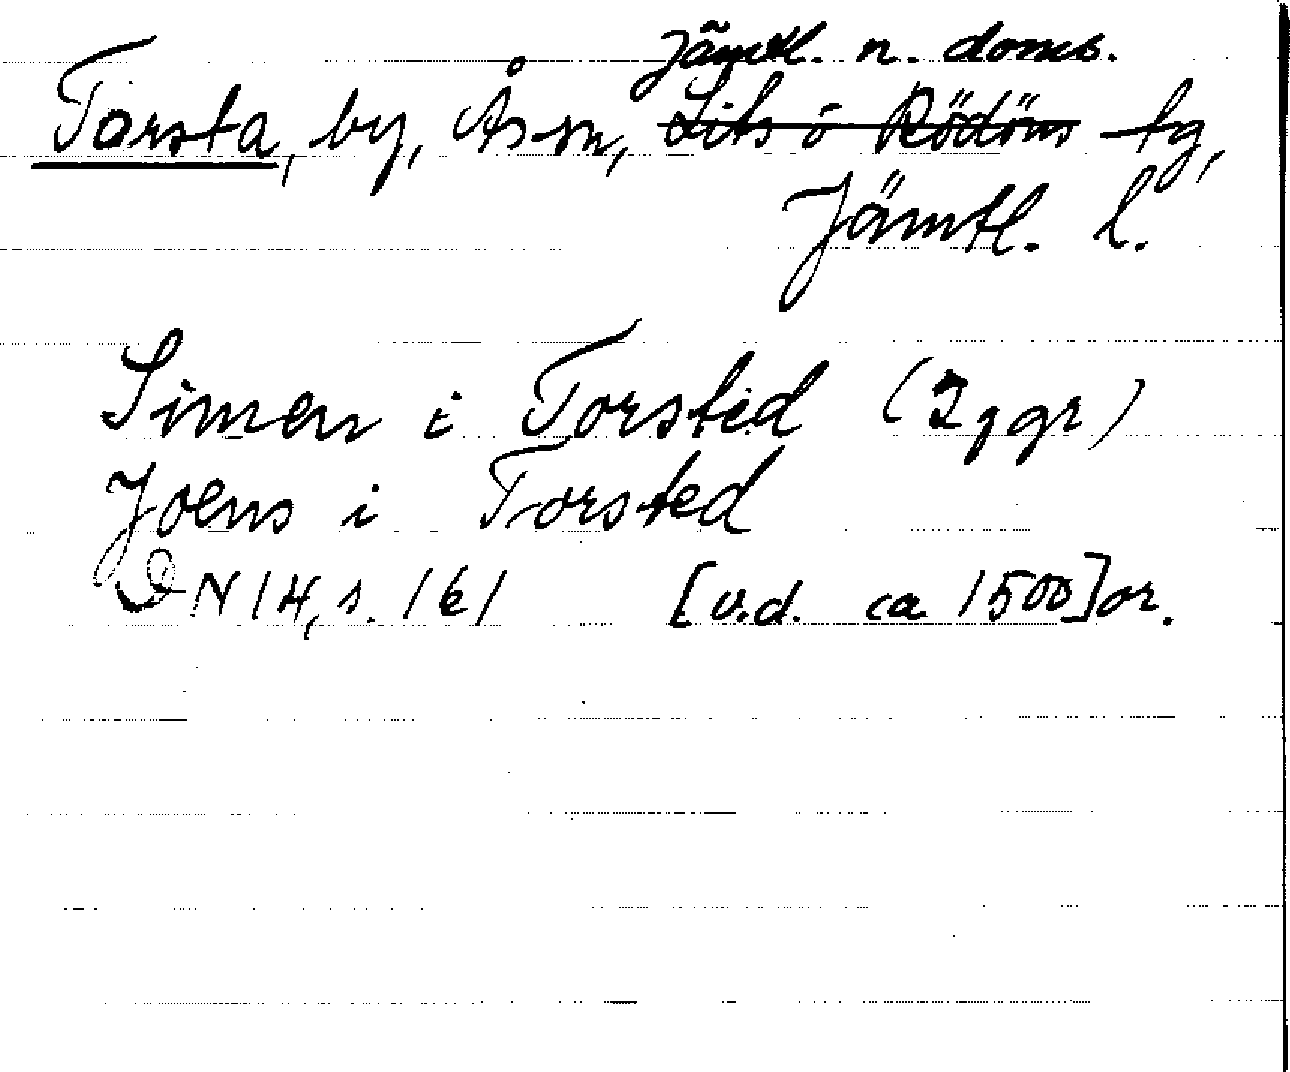 Jämtl. n. doms.
Torsta, by, Ås sn, Lits o Rödöns tg,
Jämtl. l.
Simen i Torsted (2 ggr)
Joens i Torsted
DN 14, s. 161 [u.d. ca 1500] or.